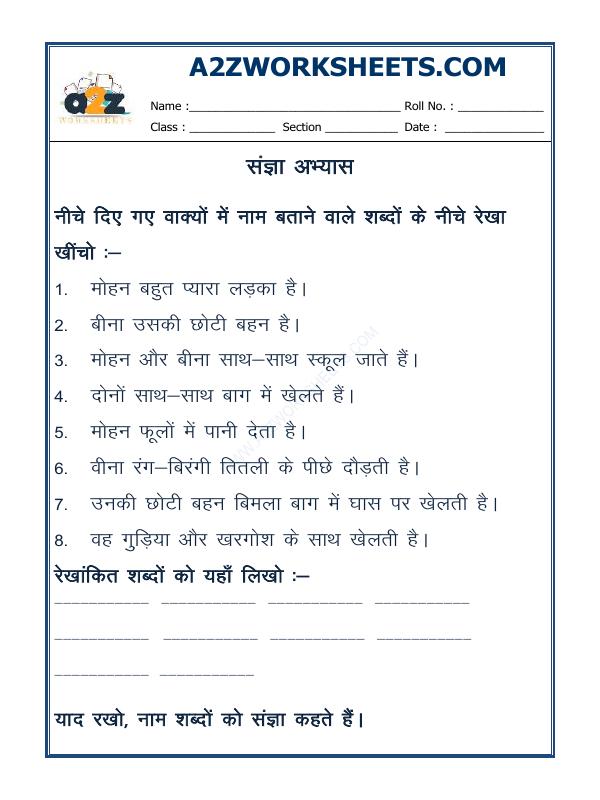 A2ZWORKSHEETS.COM
a2z
WORKSHEETS
Name :______________________________ Roll No. : ____________
Class : ____________ Section __________ Date : ______________
संज्ञा अभ्यास
नीचे दिए गए वाक्यों में नाम बताने वाले शब्दों के नीचे रेखा
खींचो :–
1. मोहन बहुत प्यारा लड़का है।
2. बीना उसकी छोटी बहन है।
3. मोहन और बीना साथ–साथ स्कूल जाते हैं।
4. दोनों साथ–साथ बाग में खेलते हैं।
5. मोहन फूलों में पानी देता है।
6. वीना रंग–बिरंगी तितली के पीछे दौड़ती है।
7. उनकी छोटी बहन बिमला बाग में घास पर खेलती है।
8. वह गुड़िया और खरगोश के साथ खेलती है।
रेखांकित शब्दों को यहाँ लिखो :–
___________ ___________ ___________ ___________
___________ ___________ ___________ ___________
___________ ___________
याद रखो, नाम शब्दों को संज्ञा कहते हैं।